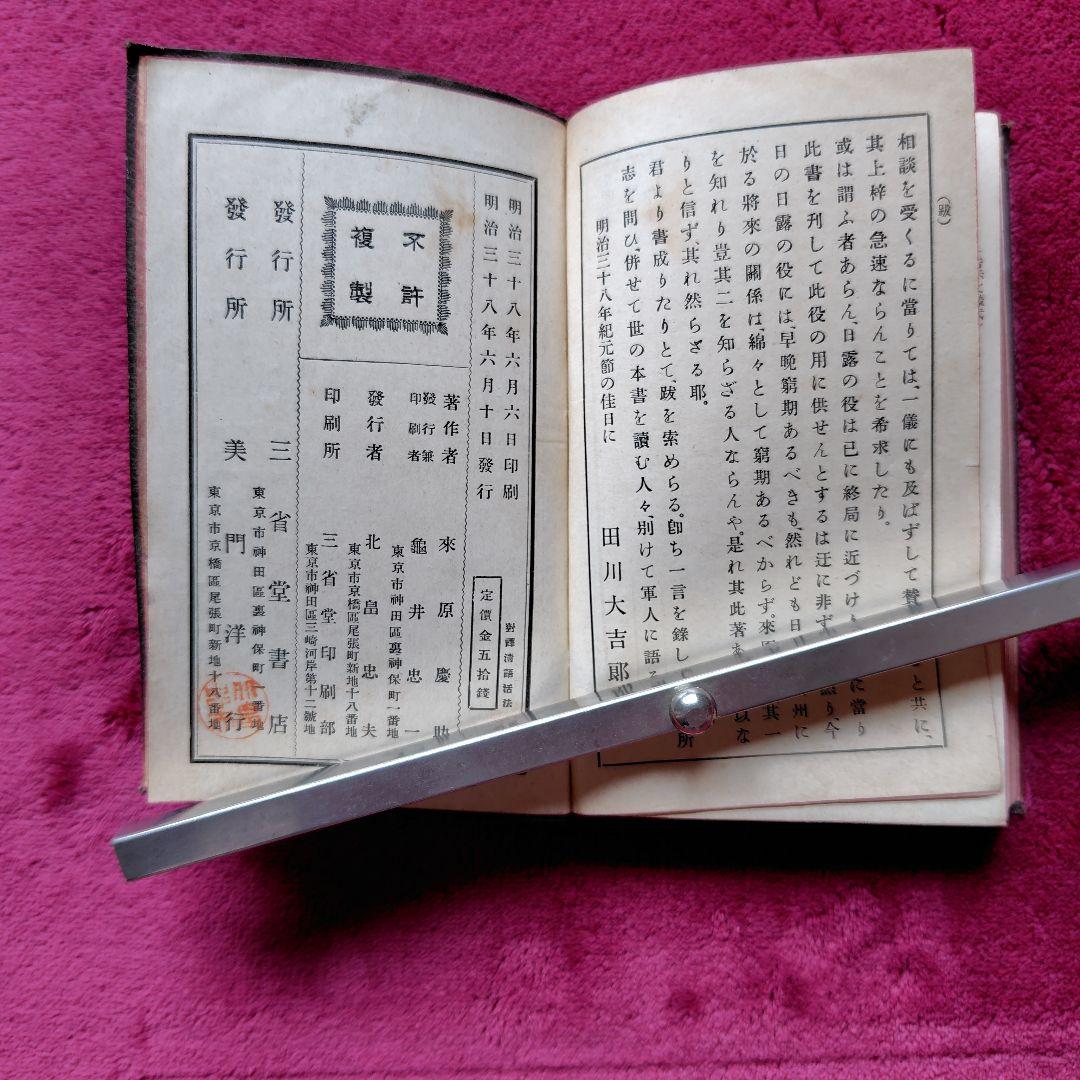 (跋)
相談を受くるに當りては、一儀にも及ばずして賛 と共に、
其上梓の急速ならんことを希求したり。
或は謂ふ者あらん、日露の役は已に終局に近づけ に當り
此書を刊して此役の用に供せんとするは迂に非ず 照り、今
日の日露の役には、早晩窮期あるべきも、然れども日 州に
於る將來の關係は、綿々として窮期あるべからず。來原 其一
を知れり豈其二を知らざる人ならんや。是れ其此著あ 以な
りと信ず、其れ然らざる耶。
君より書成りたりとて、跋を索めらる。卽ち一言を錄し 所
志を問ひ、併せて世の本書を讀む人々、別けて軍人に語る
明治三十八年紀元節の佳日に
田川大吉郞
明治三十八年六月六日印刷
明治三十八年六月十日發行
對譯淸語活法
定價金五拾錢
不許
複製
著作者 來原慶助
發行兼印刷者 龜井忠一
東京市神田區裏神保町一番地
發行者 北畠忠夫
東京市京橋區尾張町新地十八番地
印刷所 三省堂印刷部
東京市神田區三崎河岸第十二號地
發行所 三省堂書店
東京市神田區裏神保町一番地
發行所 美門洋行
東京市京橋區尾張町新地十八番地